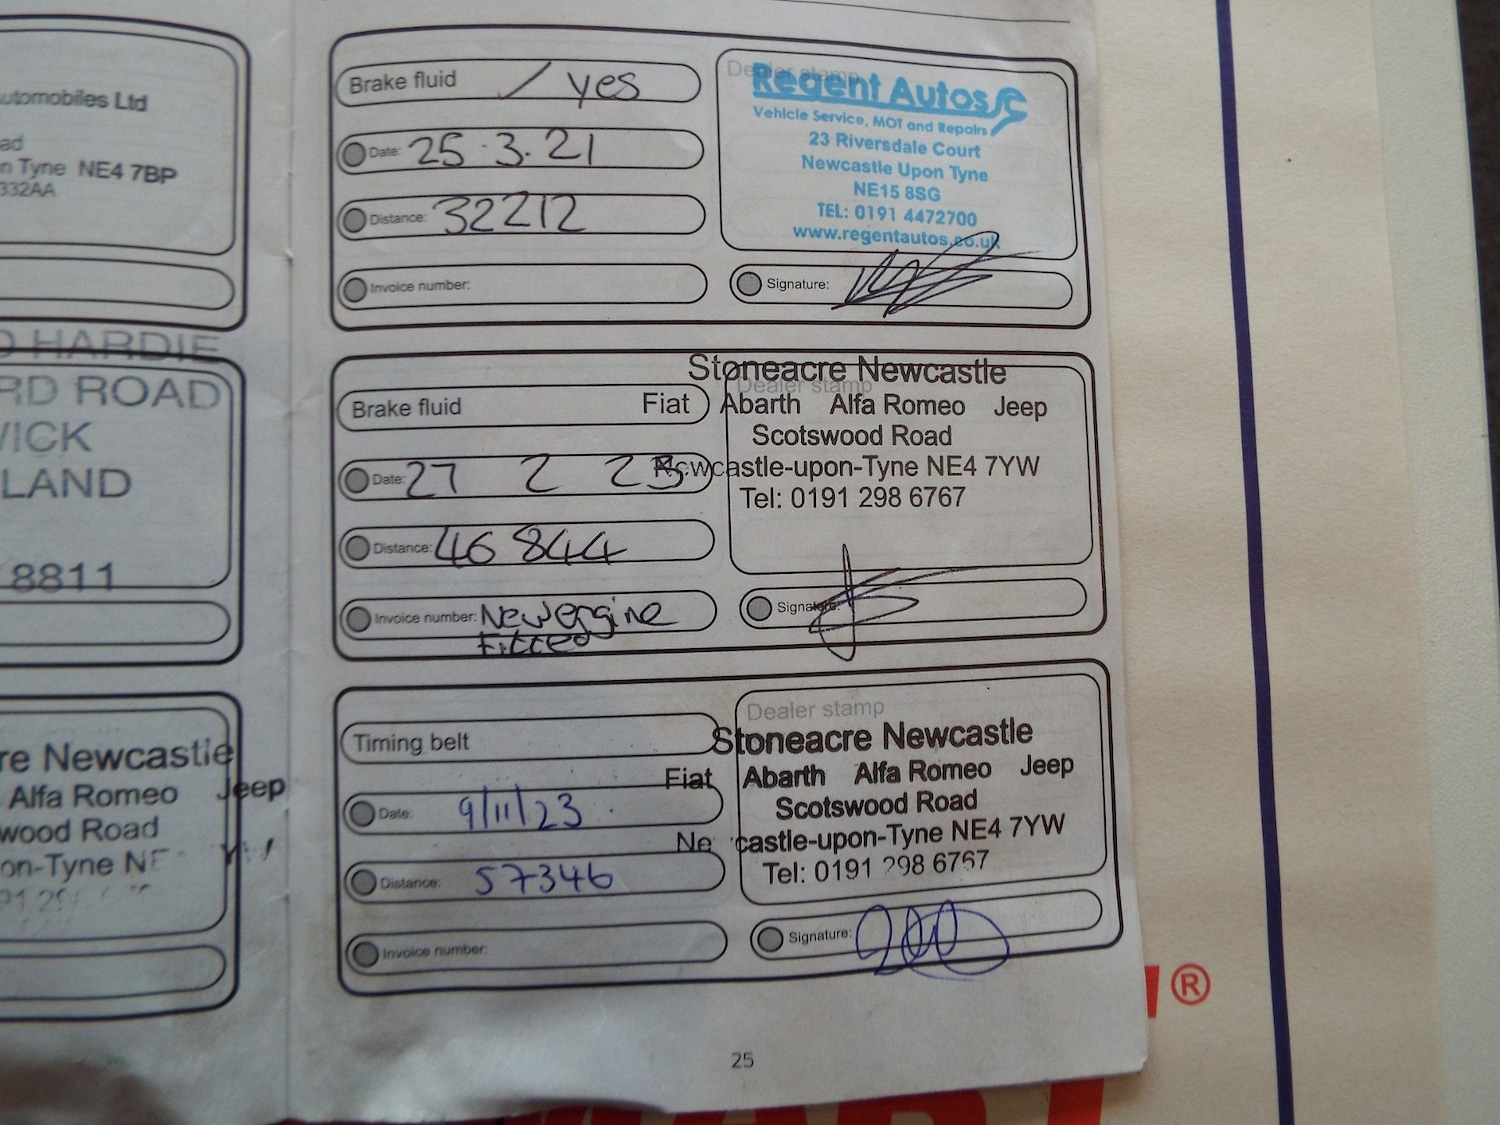 utomobiles Ltd
ad
n Tyne NE4 7BP
332AA
D HARDIE
RD ROAD
VICK
LAND
8811
re Newcastle
Alfa Romeo Jeep
wood Road
on-Tyne
Brake fluid / yes
Date: 25.3.21
Distance: 32212
Invoice number:
Dealer stamp
Regent Autos
Vehicle Service, MOT and Repairs
23 Riversdale Court
Newcastle Upon Tyne
NE15 8SG
TEL: 0191 4472700
www.regentautos.co.uk
Signature:
Brake fluid
Date: 27 2 23
Distance: 46844
Invoice number: New engine
Fitted
Dealer stamp
Stoneacre Newcastle
Fiat Abarth Alfa Romeo Jeep
Scotswood Road
Newcastle-upon-Tyne NE4 7YW
Tel: 0191 298 6767
Signature:
Timing belt
Date: 9/11/23
Distance: 57346
Invoice number:
Dealer stamp
Stoneacre Newcastle
Fiat Abarth Alfa Romeo Jeep
Scotswood Road
Ne castle-upon-Tyne NE4 7YW
Tel: 0191 298 6767
Signature:
25
®